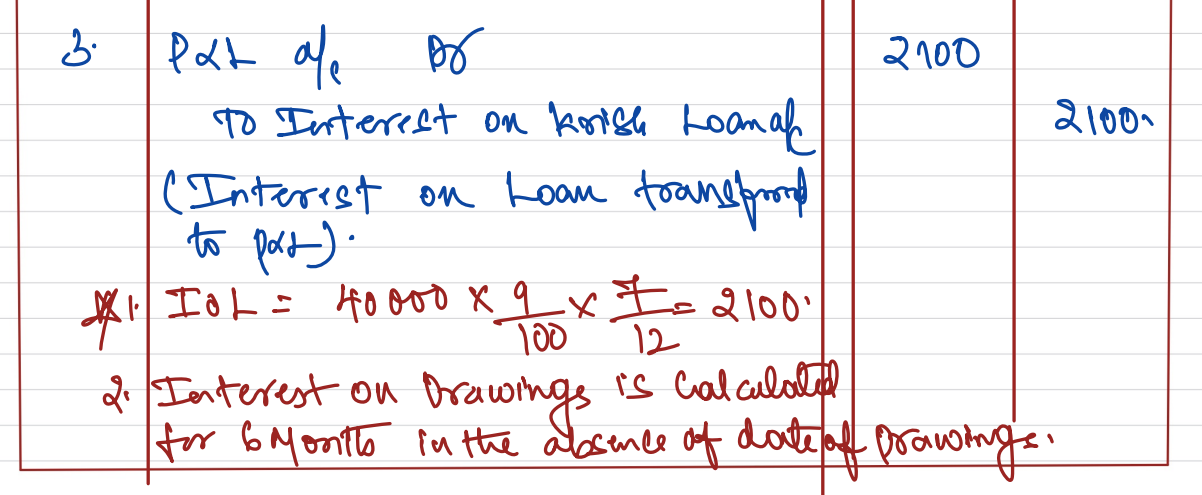 3. P&L a/c Dr 2100
To Interest on Krish Loan a/c 2100
(Interest on Loan transferred
to P&L).
*1. IOL = 40000 × 9/100 × 7/12 = 2100.
2. Interest on Drawings is Calculated
for 6 Months in the absence of date of Drawings.